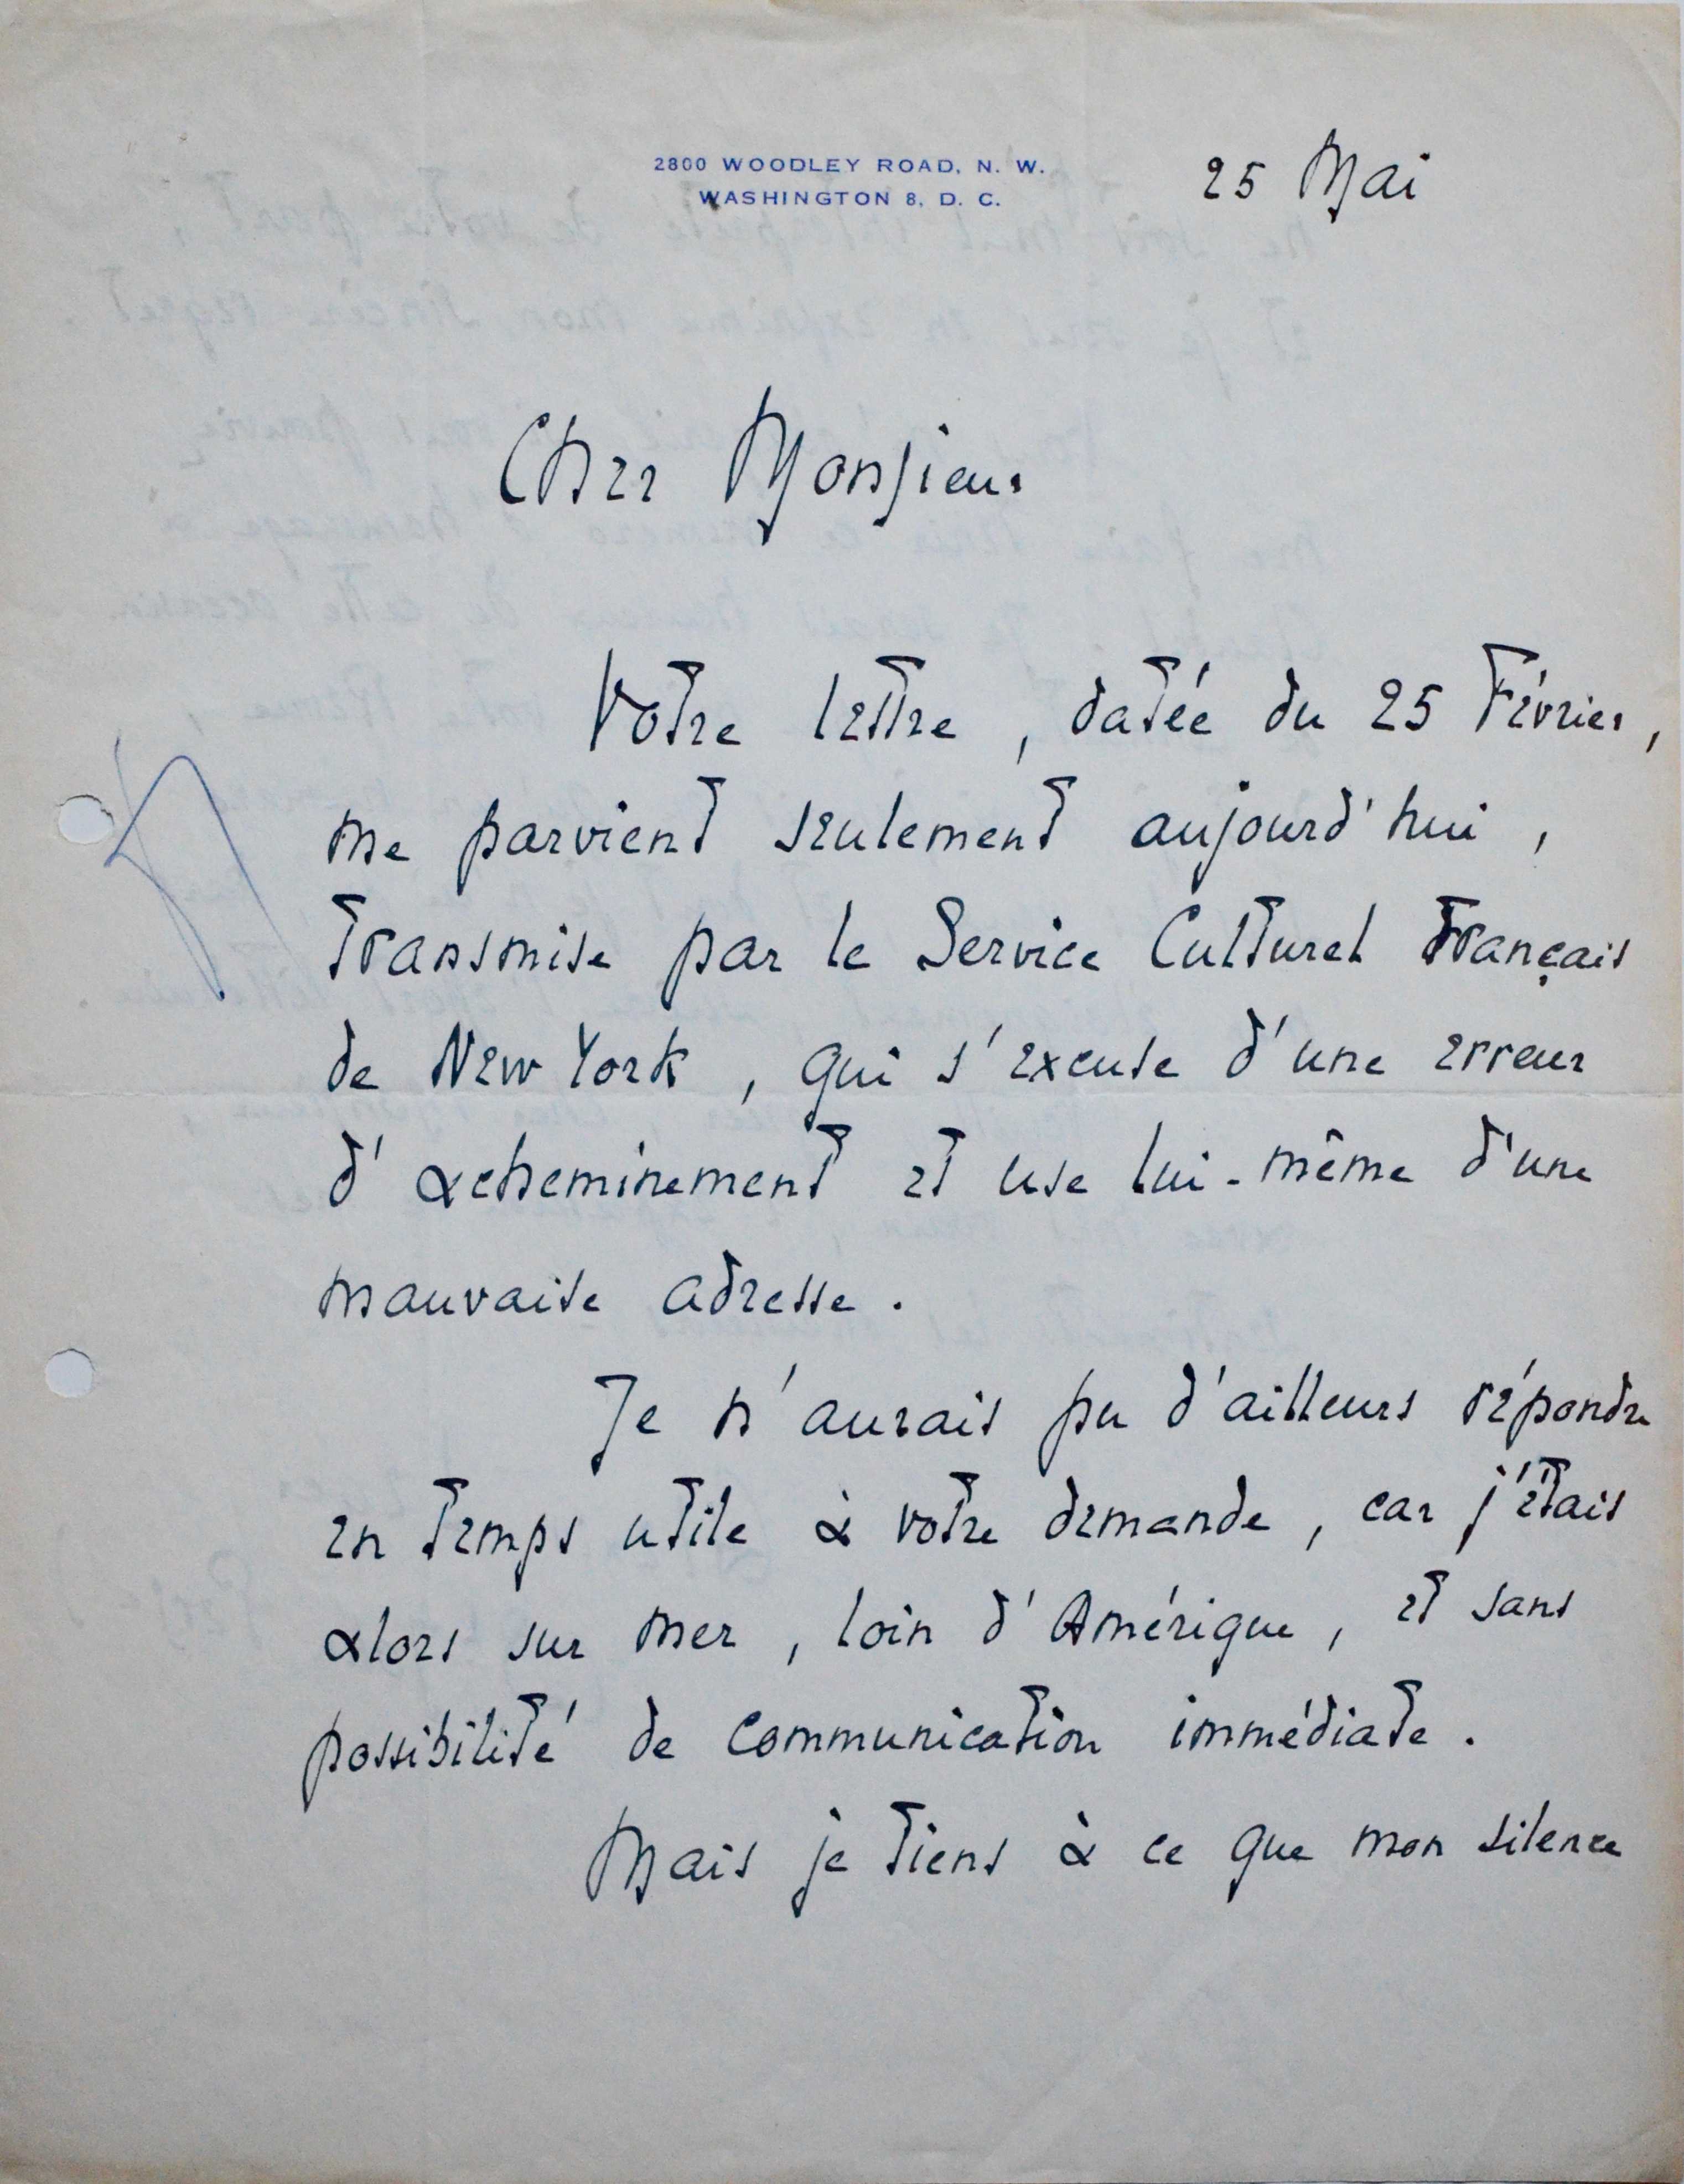 2800 WOODLEY ROAD, N. W.
WASHINGTON 8, D. C.
25 Mai
Cher Monsieur
Votre lettre, datée du 25 Février,
me parvient seulement aujourd'hui,
transmise par le Service Culturel Français
de New York, qui s'excuse d'une erreur
d'acheminement et use lui-même d'une
mauvaise adresse.
Je n'aurais pu d'ailleurs répondre
en temps utile à votre demande, car j'étais
alors sur mer, loin d'Amérique, et sans
possibilité de communication immédiate.
Mais je tiens à ce que mon silence